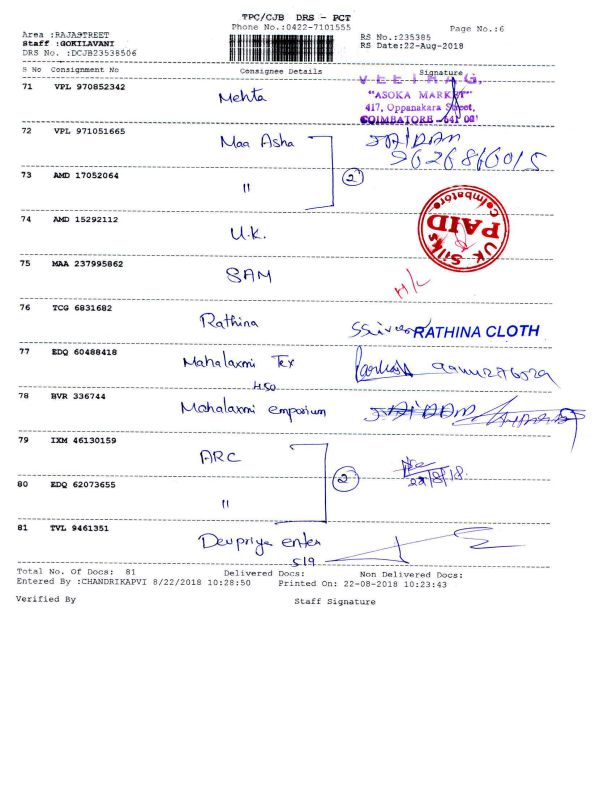 TPC/CJB DRS - PCT
Phone No.:0422-7101555
Page No.:6
Area :RAJASTREET
Staff :GOKILAVANI
DRS No. :DCJB23538506
RS No.:235385
RS Date:22-Aug-2018
S No Consignment No Consignee Details Signature
71 VPL 970852342 Mehta
"ASOKA MARKET"
417, Oppanakara Street,
COIMBATORE - 641 001
72 VPL 971051665 Maa Asha
73 AMD 17052064 "
2
74 AMD 15292112 U.K.
UK Silks Coimbatore
PAID
75 MAA 237995862 SAM
76 TCG 6831682 Rathina
RATHINA CLOTH
77 EDQ 60488418 Mahalaxmi Tex
450
78 BVR 336744 Mahalaxmi emporium
79 IXM 46130159 ARC
2
22/8/18.
80 EDQ 62073655 "
81 TVL 9461351 Devpriya enter
519
Total No. Of Docs: 81 Delivered Docs: Non Delivered Docs:
Entered By :CHANDRIKAPVI 8/22/2018 10:28:50 Printed On: 22-08-2018 10:23:43
Verified By Staff Signature